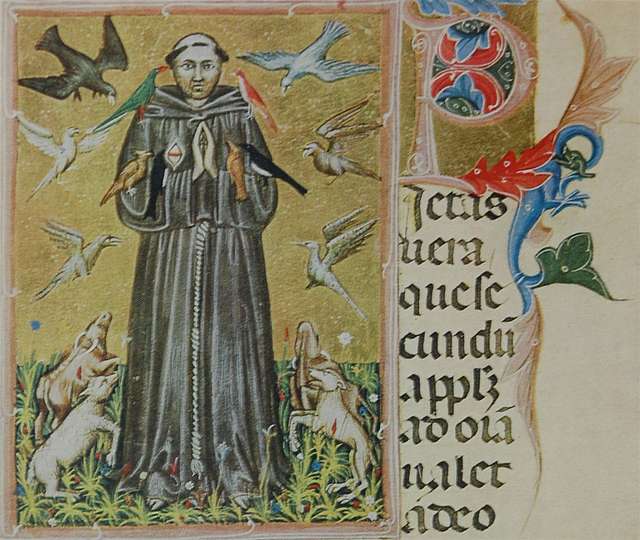 Pietas
uera
que se
cundū
applꝫ
ad oīa
ualet
adeo